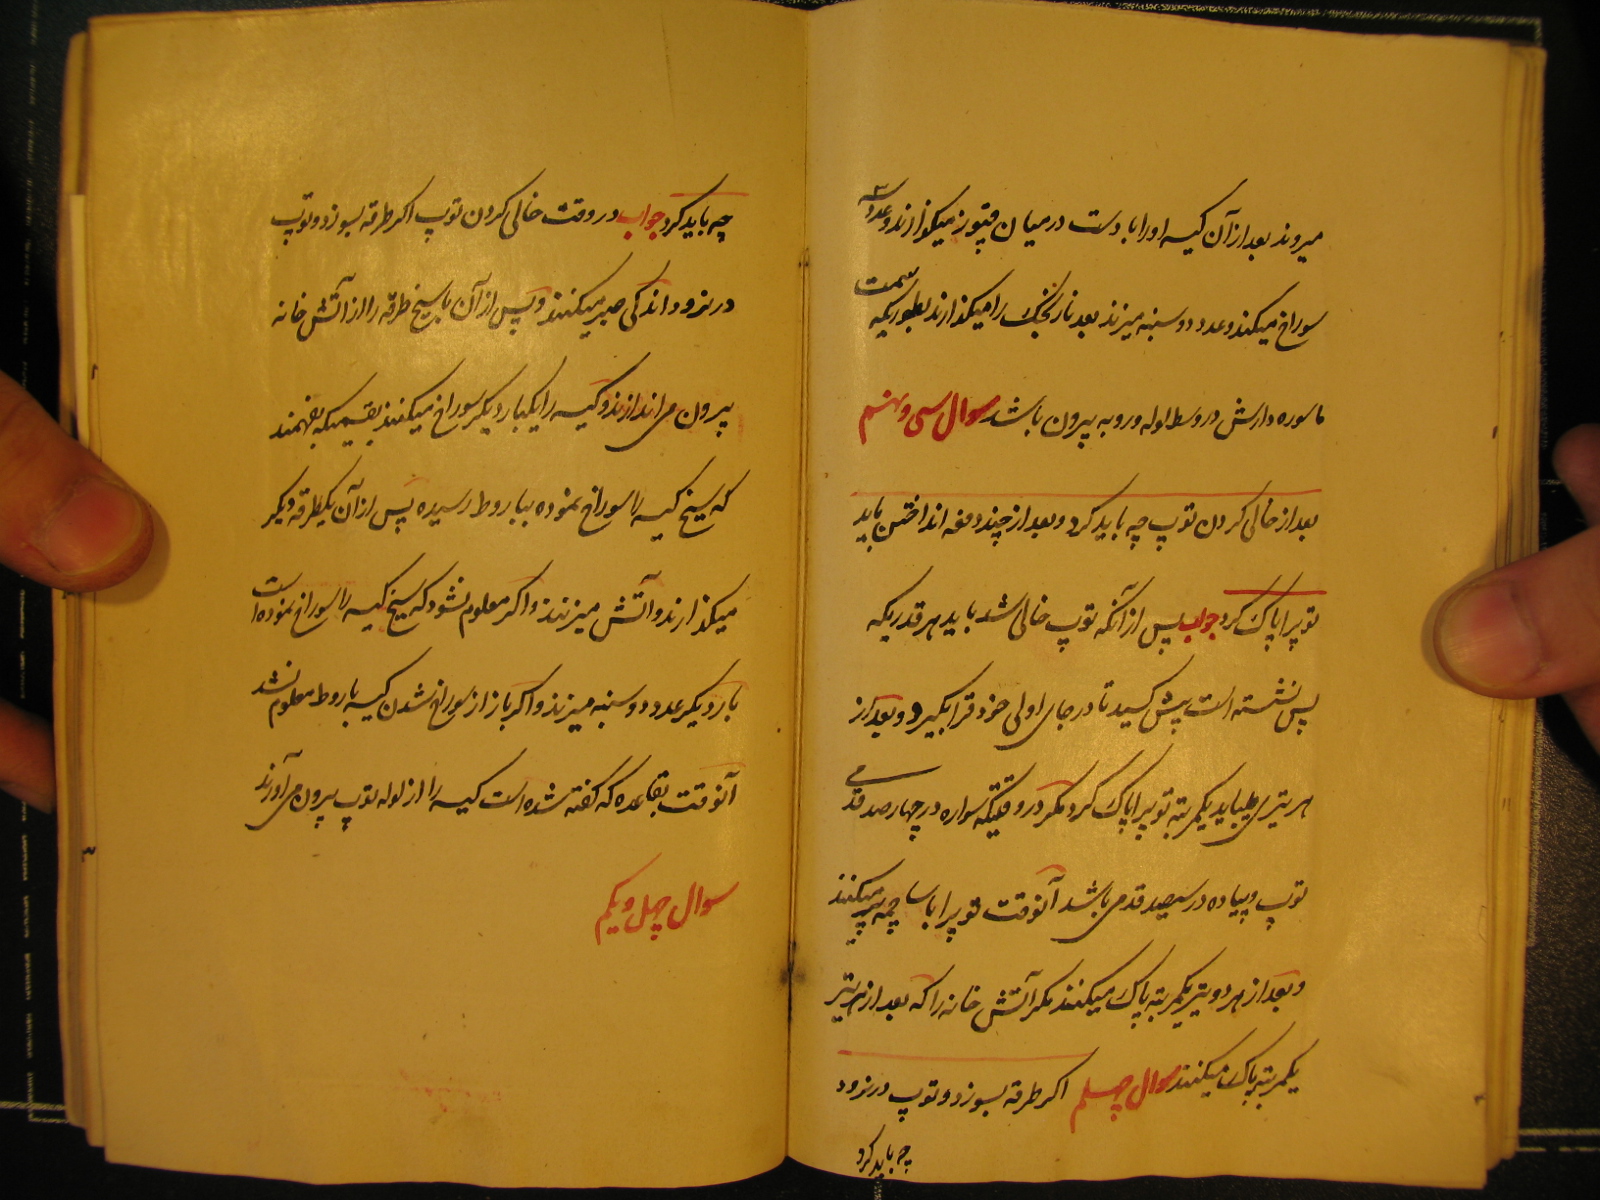 میروند بعد از آن کیسه اورا با دست در میان میگذارند و عدد سه
سوراخ میکند و عدد دو سنبه میزند بعد نارنجک را میکذارند بطوریکه سمت
ماسوره دارش در وسط لوله و رو به بیرون باشد سوال سی و نهم
بعد از خالی کردن توپ چه باید کرد و بعد از چند دفعه انداختن باید
توپرا پاک کرد جواب پس از آنکه توپ خالی شد باید هر قدریکه
پس نشسته است پیش کشید تا در جای اولی خود قرا بگیرد و بعد از
هر تیری یکمرتبه توپرا پاک کرد مگر در وقتیکه سواره در چهار صد قدمی
توپ و پیاده در سیصد قدمی باشد آنوقت توپرا با ساچمه پر میکنند
و بعد از هر دو تیر یکمرتبه پاک میکنند مکر آتش خانه را که بعد از هر تیر
یکمرتبه پاک میکنند سوال چهلم اکر طرقه بسوزد و توپ در نرود
چه باید کرد
چه باید کرد جواب در وقت خالی کردن توپ اکر طرقه بسوزد و توپ
در نرود اندکی صبر میکنند و پس از آن با سیخ طرقه را از آتش خانه
بیرون می اندازند و کیسه را یکبار دیگر سوراخ میکنند بقسمیکه بفهمند
که سیخ کیسه را سوراخ نموده بباروط رسیده پس از آن یکطرقه دیکر
میکذارند و آتش میزنند و اکر معلوم نشود که سیخ کیسه را سوراخ نموده است
بار دیگر عدد دو سنبه میزند و اکر باز از سوراخ شدن کیسه باروط معلوم نشد
آنوقت بقاعده که کفته شده است کیسه را از لوله توپ بیرون می آورند
سوال چهل و یکم